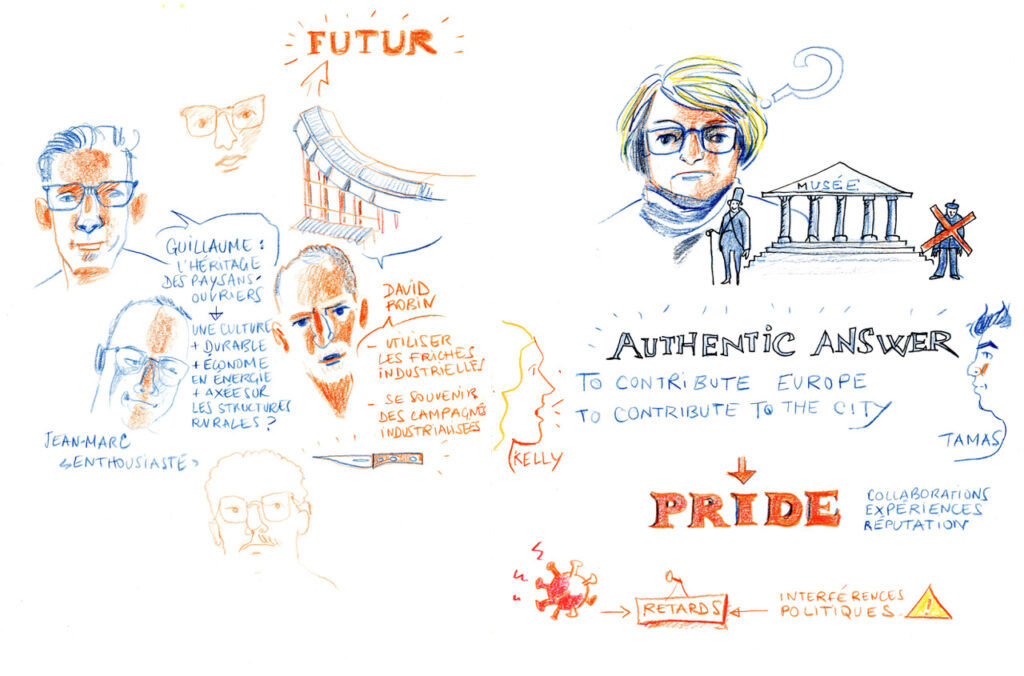 FUTUR
GUILLAUME :
L'HÉRITAGE
DES PAYSANS-
OUVRIERS
UNE CULTURE
+ DURABLE
+ ÉCONOME
EN ENERGIE
+ AXÉE SUR
LES STRUCTURES
RURALES ?
JEAN-MARC
"ENTHOUSIASTE"
DAVID
ROBIN
- UTILISER
LES FRICHES
INDUSTRIELLES
- SE SOUVENIR
DES CAMPAGNES
INDUSTRIALISÉES
KELLY
?
MUSÉE
AUTHENTIC ANSWER
TO CONTRIBUTE EUROPE
TO CONTRIBUTE TO THE CITY
TAMAS
PRIDE
COLLABORATIONS
EXPÉRIENCES
RÉPUTATION
RETARDS
INTERFÉRENCES
POLITIQUES
!